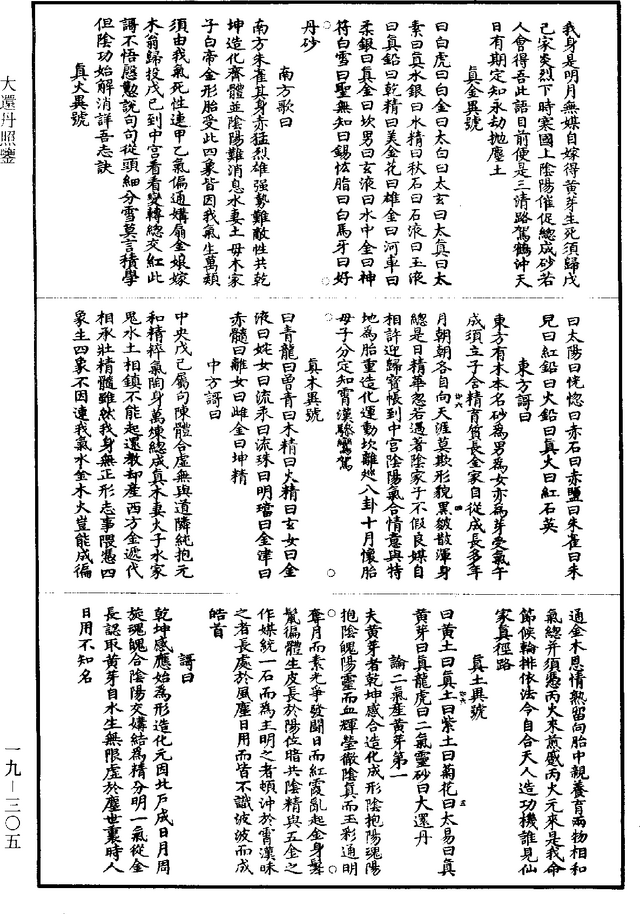 我身是明月無媒自嫁得黃芽生死須歸戊
己家炎烈下時寒國上陰陽催促總成砂若
人會得吾此語目前便是三清路駕鶴沖天
日有期定知永劫拋塵土
真金異號
曰白虎曰白金曰太白曰太玄曰太真曰太
素曰真水銀曰水精曰秋石曰石液曰玉液
曰真鉛曰乾精曰美金花曰雄金曰河車曰
柔銀曰真金曰坎男曰玄液曰水中金曰神
符白雪曰聖無知曰錫恡脂曰白馬牙曰好
丹砂
南方歌曰
南方朱雀其身赤猛烈雄强勢難敵性共乾
坤造化齊體並陰陽難消息水妻土母木家
子白帝金形胎受此四象皆因我氣生萬類
須由我氣死性連甲乙氣偏通媾扇金娘嫁
木翁歸投戊己到中宮看看變轉總交紅此
謌不悟慇懃說句句從頭細分雪莫言積學
但陰功始解消詳吾志訣
真火異號
曰太陽曰恍惚曰赤石曰赤鹽曰朱雀曰朱
兒曰紅鉛曰火鉛曰真火曰紅石英
東方謌曰
東方有木本名砂為男為女亦為芽受氣午
成須立子合精育質長金家自從成長多年
月朝朝各自向天涯莫欺形貌黑皺散渾身
總是日精華忽若遇著陰家子不假良媒自
相許迎歸寶帳到中宮陰陽氣合情意與特
地為胎重造化運動坎離廵八卦十月懷胎
母子分定知霄漢驂鸞駕
真木異號
曰青龍曰曾青曰木精曰火精曰玄女曰金
液曰姹女曰流汞曰流珠曰明璫曰金津曰
赤髓曰離女曰雌金曰坤精
中方謌曰
中央戊己屬句陳體合虛無與道隣純抱元
和精粹氣陶身萬煉總成真木妻火子水家
鬼水土相鎮不能起還教却產西方金遞代
相承壯精髓雖然我身無正形志事隈憑四
象生四象不因連我氣水金木火豈能成徧
通金木恩情熟留向胎中親養育兩物相和
氣總并須憑丙火來煎慼丙火元來是我命
節候輪排依法令自合天人造功機誰見仙
家真徑路
真土異號
曰黃土曰真土曰紫土曰菊花曰太易曰真
黃芽曰真龍虎曰二氣靈砂曰大還丹
論二氣產黃芽第一
夫黃芽者乾坤感合造化成形陰抱陽魂陽
抱陰魄陽靈而血輝瑩徹陰真而玉彩通明
奪月而素光爭發鬪日而紅霞亂起金身鬅
鬣徧體生皮長於陽位脂共陰精與五金之
作媒統一石而為主明之者頓沖於霄漢昧
之者長處於風塵日用而皆不識波波而成
皓首
謌曰
乾坤感應始為形造化元因此戶成日月周
旋魂魄合陰陽交媾結為精分明一氣從金
長認取黃芽自水生無限虛於塵世裏時人
日用不知名
大還丹照鑒
一九—三〇五